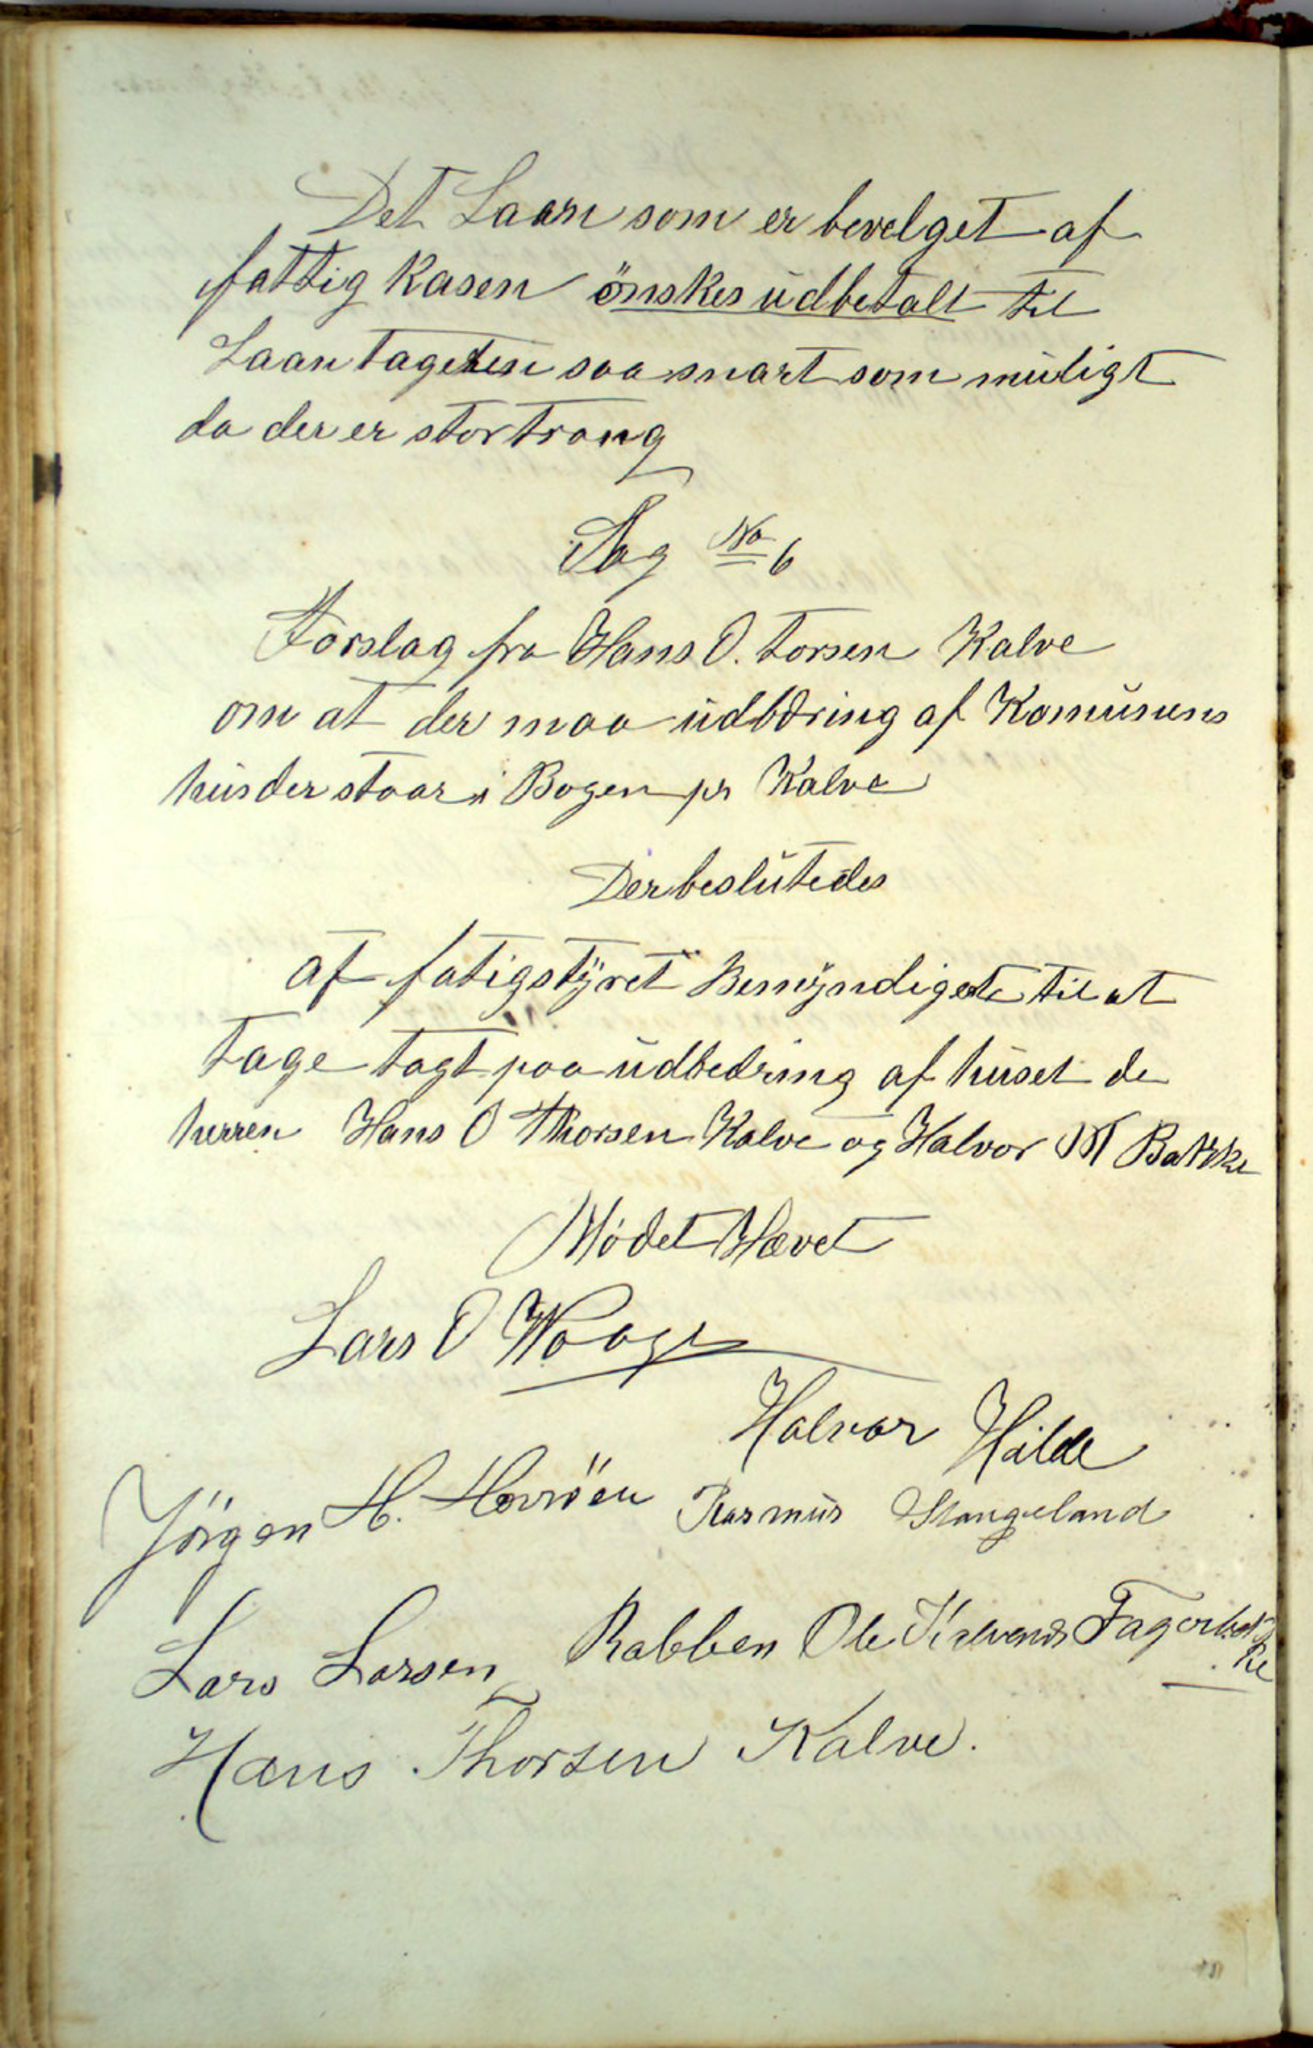 Det Laan som er bevelget af
fattig Kasen önskes udbetalt til
Laan tageren saa snart som muligt
da der er stor trang
Sag No 6
Forslag fra Hans O. torsen Kalve
om at der maa udbedring af Komunens
hus der staar i Bogen pr Kalve
Der beslutedes
af fatigstyret Bemyndigede til at
tage tagt paa udbedring af huset de
herren Hans O Thorsen Kalve og Halvor M Bakke
Mödet Hævet
Lars O Waage
Halvor Hilde
Jörgen H. Hovröen Rasmus Stangeland
Lars Larsen Rabben Ole Halvorsen Fagerbakke
Hans Thorsen Kalve.